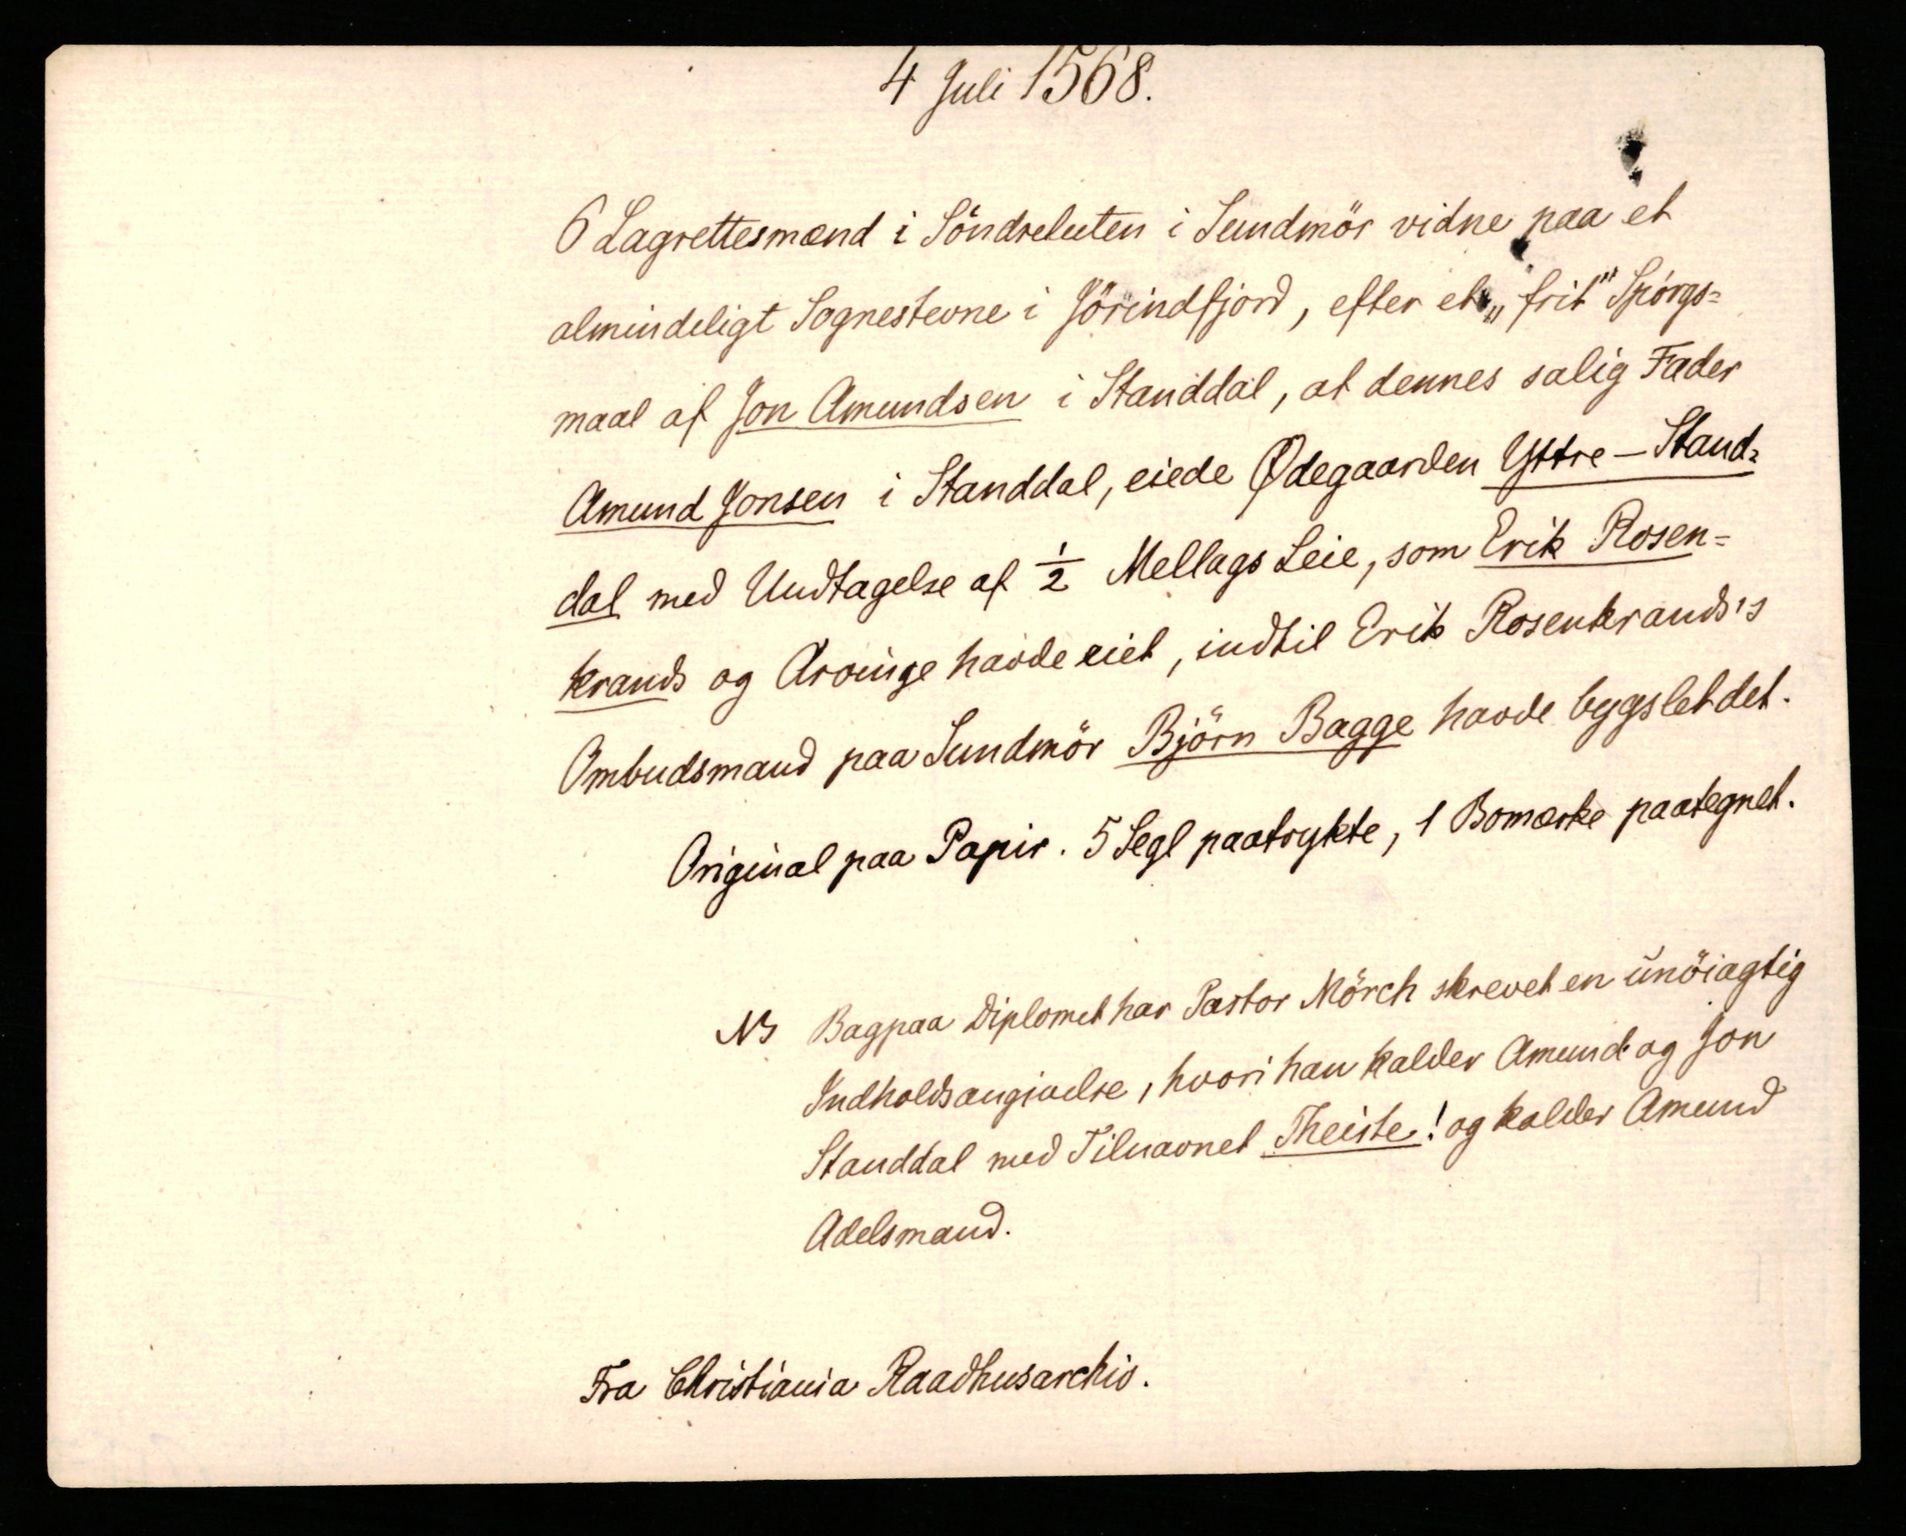 4 Juli 1568.
6 Lagrettesmænd i Söndreluten i Sundmör vidne paa et
almindeligt Sognestevne i Jörindfjord, efter et „frit" Spörgs=
maal af Jon Amundsen i Standdal, at dennes salig Fader
Amund Jonsen i Standdal, eiede Ødegaarden Yttre-Stand=
dal med Undtagelse af ½ Mellags Leie, som Erik Rosen=
krands og Arvinge havde eiet, indtil Erik Rosenkrands's
Ombudsmand paa Sundmör Björn Bagge havde bygslet det.
Original paa Papir. 5 Segl paatrykte, 1 Bomærke paategnet.
NB Bagpaa Diplomet har Pastor Mörch skrevet en unöiagtig
Indholdsangivelse, hvori han kalder Amund og Jon
Standdal med Tilnavnet Theiste! og kalder Amund
Adelsmand.
Fra Christiania Raadhusarchiv.